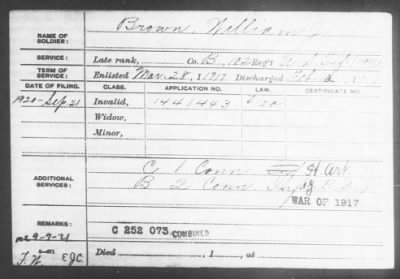 NAME OF SOLDIER: Brown, William
SERVICE: Late rank, Co. B, 102 Regt
TERM OF SERVICE: Enlisted Mar. 28, 1917 Discharged
DATE OF FILING. CLASS. APPLICATION NO. LAW. CERTIFICATE NO.
1920-Sep. 21 Invalid, 1441443
Widow,
Minor,
ADDITIONAL SERVICES: C 1 Conn
B 2 Conn
WAR OF 1917
REMARKS: C 252 073 COMBINED
9-9-21
EJC. Died , 1 , at